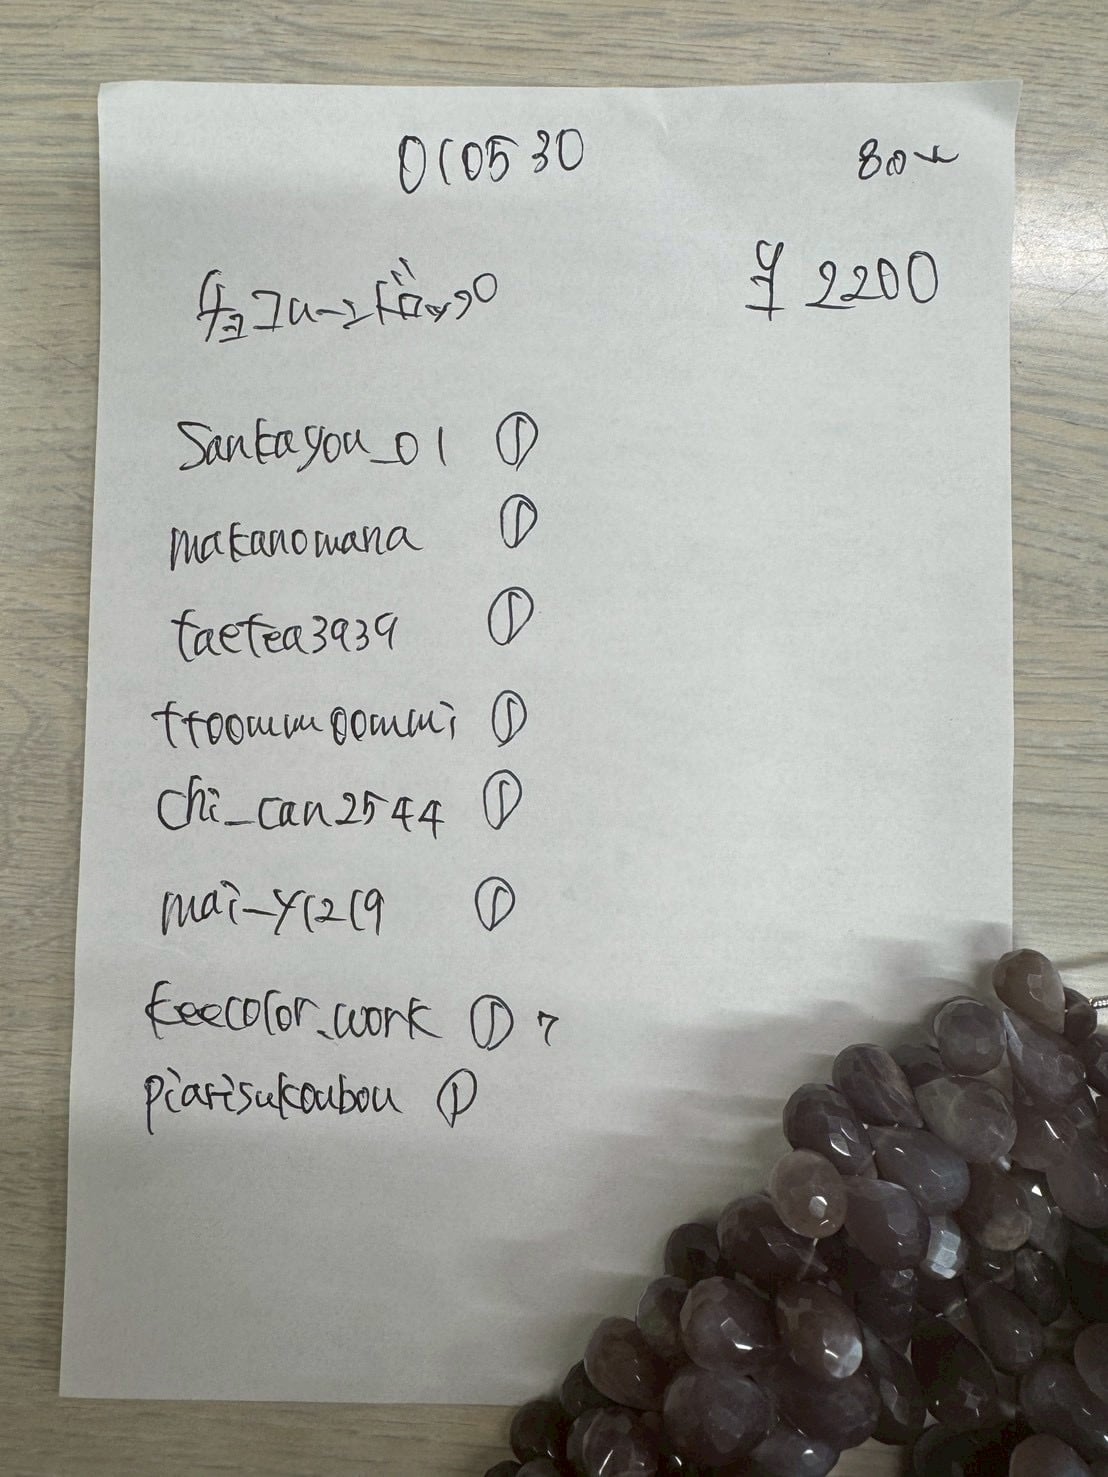 010530
80
¥ 2200
Sankayou_01 ①
makanomana ①
taetea3939 ①
ttoommoommi ①
chi_can2544 ①
mai_y1219 ①
keecolor.work ① 7
piarisukoubou ①